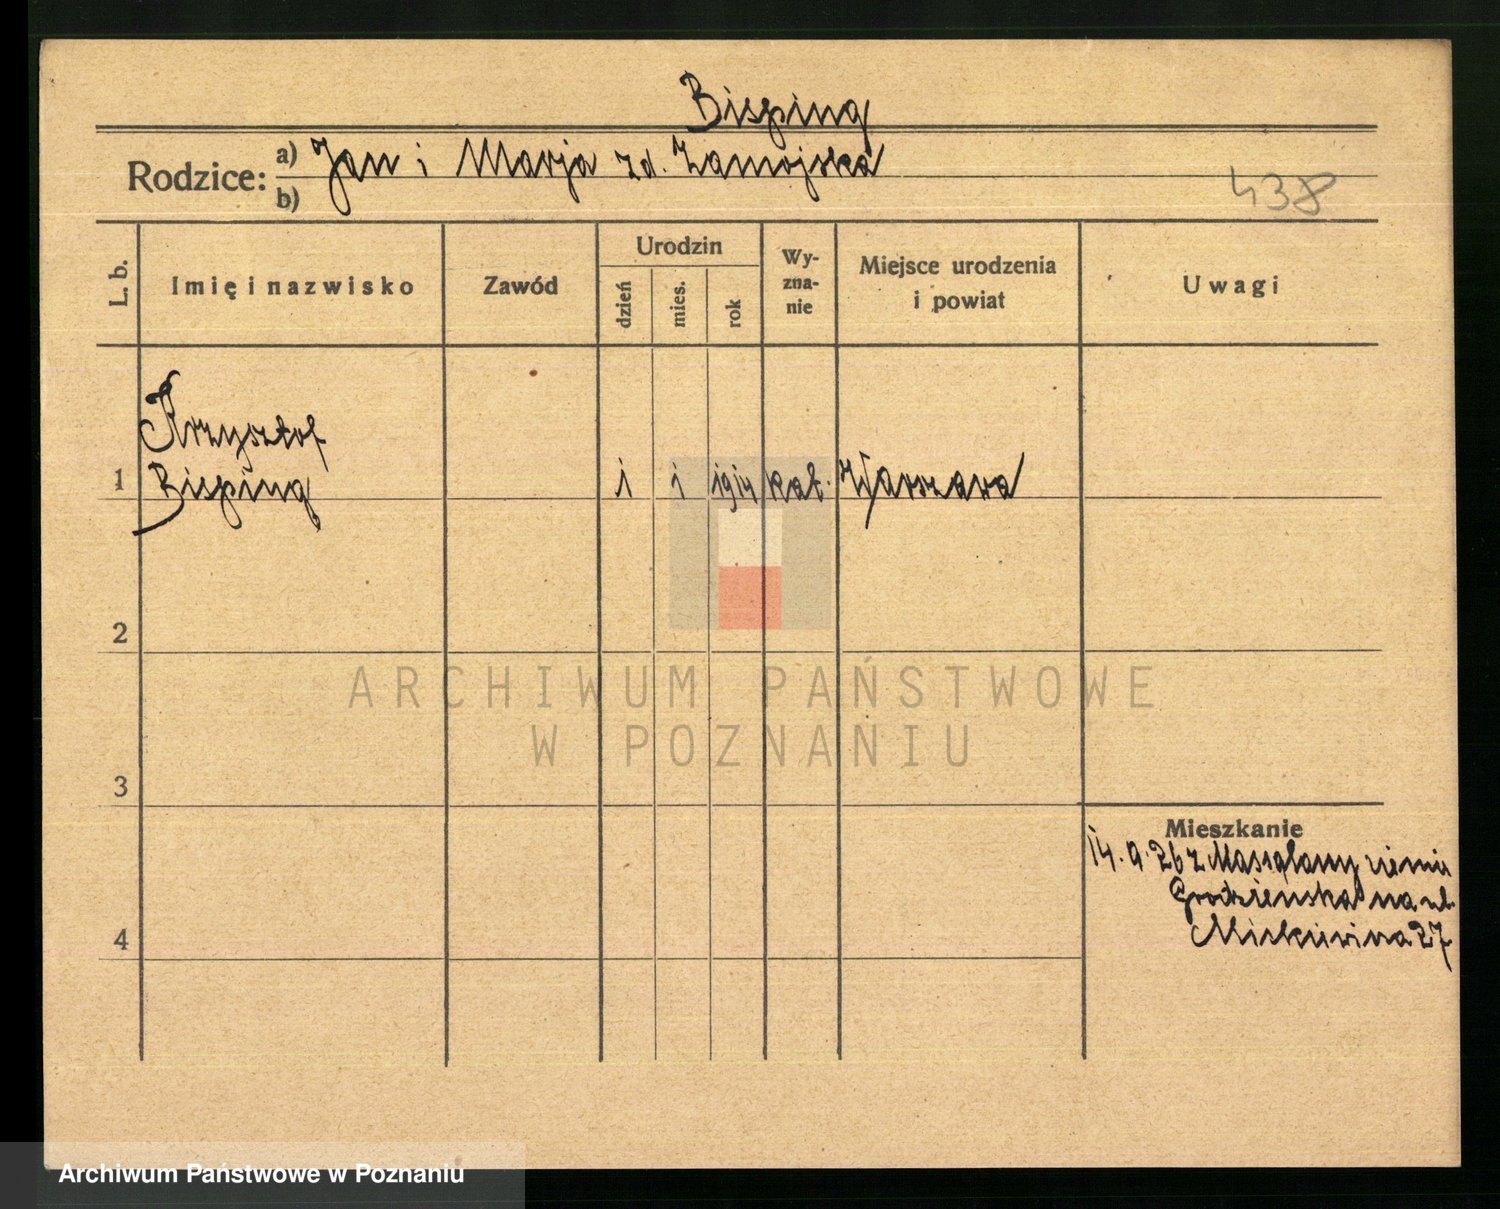 Bisping
Rodzice: a) Jan i Marja zd. Zamojska
b)
438
L. b.
Imię i nazwisko
Zawód
Urodzin
dzień
mies.
rok
Wy-
zna-
nie
Miejsce urodzenia
i powiat
Uwagi
Krzysztof
1 Bisping 1 1 1914 kat. Warszawa
2
3
4
Mieszkanie
14. 9. 26 z Massalany ziemi
Grodzieńska na ul.
27
ARCHIWUM PAŃSTWOWE
W POZNANIU
Archiwum Państwowe w Poznaniu